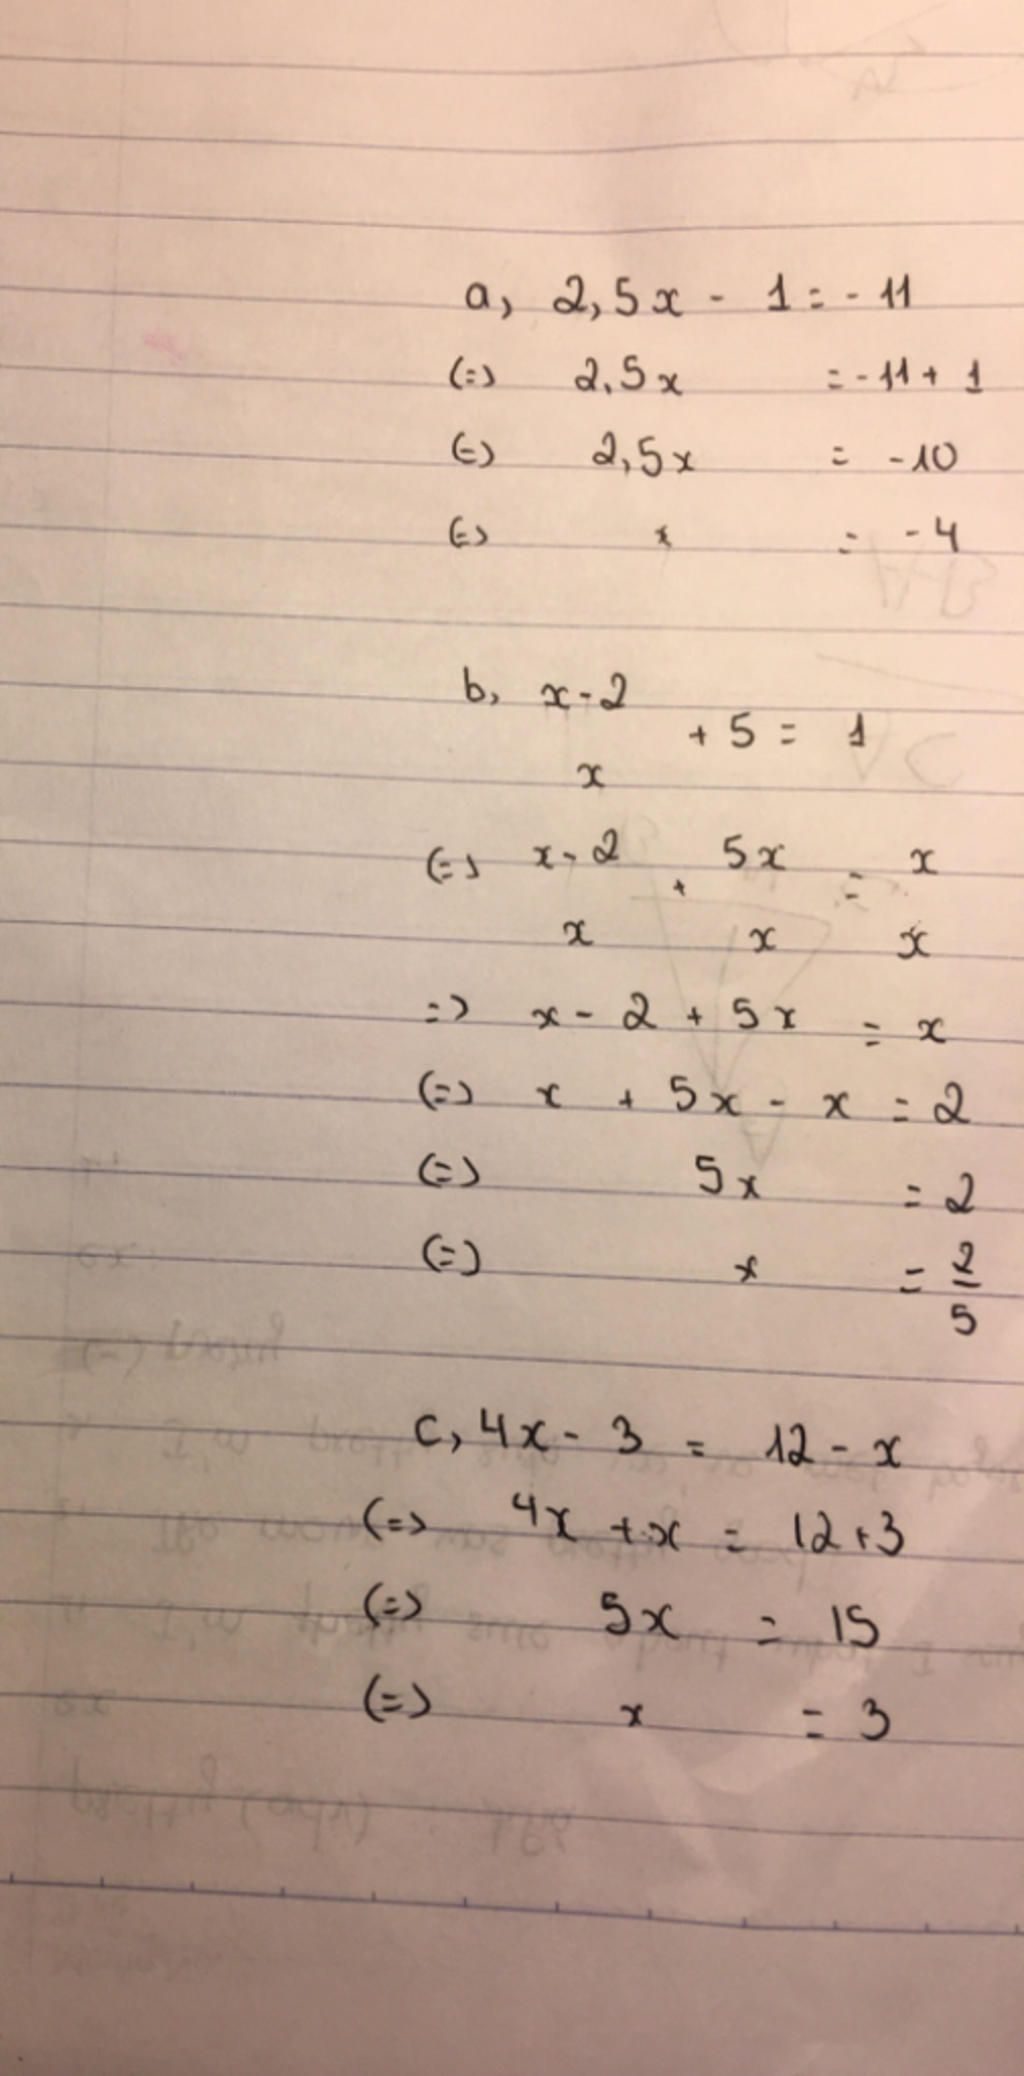 a, 2,5x - 1 = -11
(=) 2,5x = -11 + 1
(=) 2,5x = -10
(=) x = -4
b, x - 2
+ 5 = 1
x
(=) x - 2 + 5x = x
x x x
=) x - 2 + 5x = x
(=) x + 5x - x = 2
(=) 5x = 2
(=) x = 2
5
c, 4x - 3 = 12 - x
(=) 4x + x = 12 + 3
(=) 5x = 15
(=) x = 3